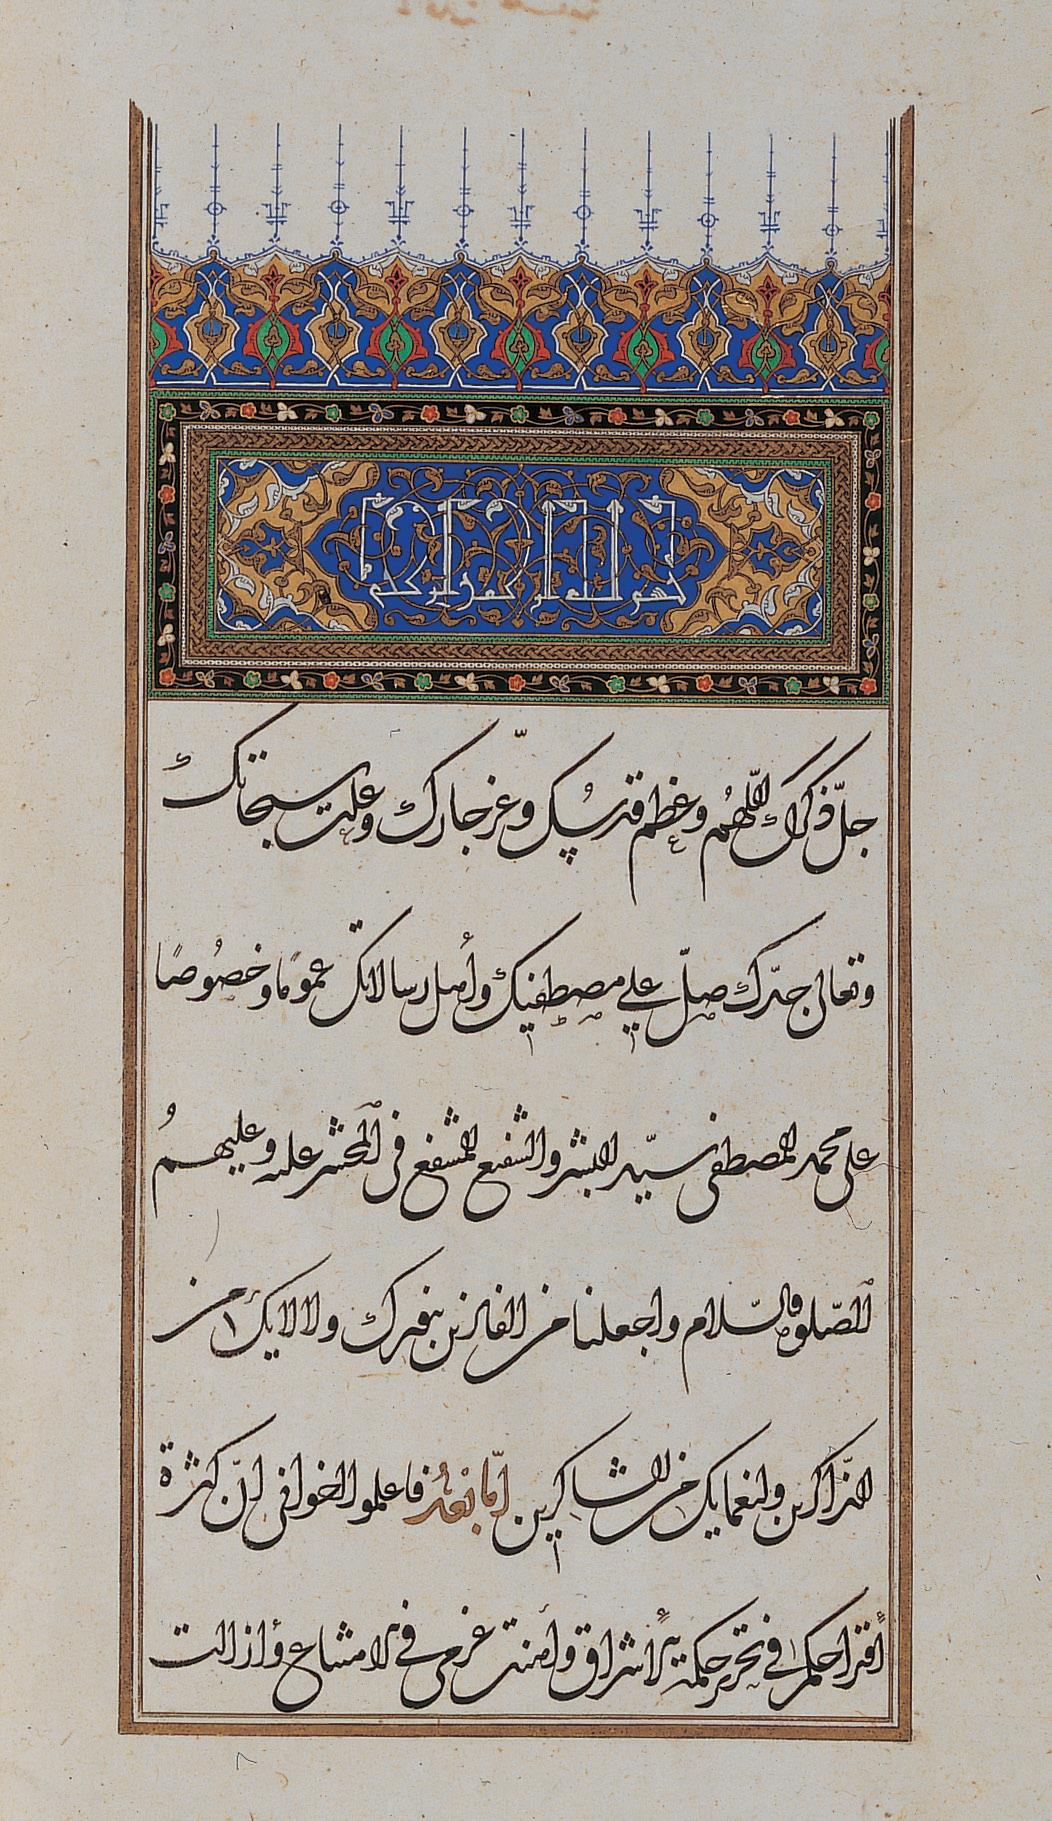 بسم الله الرحمن الرحيم
جلّ ذكرك اللّهم وعظم قدسك وعزّ جارك وعلت سبحاتك
وتعالى جدّك صلّ على مصطفيك وأهل رسالاتك عمومًا وخصُوصًا
على محمد المصطفى سيّد البشر والشفيع المشفع في المحشر عليه وعليهمُ
الصّلوة والسّلام واجعلنا من الفائزين بنورك ولالايك من
الذّاكرين ولنعمايك من الشاكرين امّا بعدُ فاعلموا اخواني انّ كثرة
أقتراحكم في تحرير حكمة الأشراق وأهنت عزمي في الامتناع وأزالت